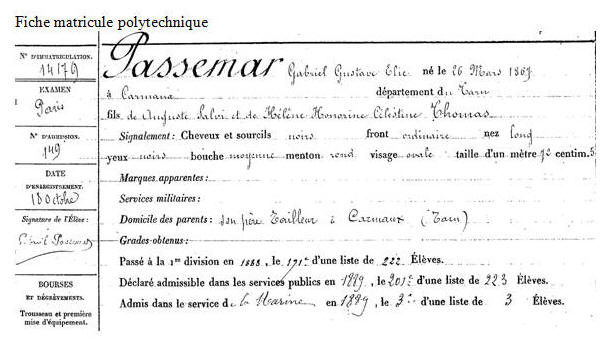 Fiche matricule polytechnique
N° D'IMMATRICULATION.
14179
EXAMEN
Paris
N° D'ADMISSION.
149
DATE
D'ENREGISTREMENT.
18 octobre
Signature de l'Élève :
BOURSES
ET DÉGRÈVEMENTS.
Trousseau et première
mise d'équipement.
Passemar Gabriel Gustave Elie né le 26 Mars 1867
à Carmaux département du Tarn
fils de Auguste Salvi et de Hélène Honorine Célestine Thomas
Signalement : Cheveux et sourcils noirs front ordinaire nez long
yeux noirs bouche moyenne menton rond visage ovale taille d'un mètre 72 centim. 5
Marques apparentes :
Services militaires :
Domicile des parents : son père Tailleur à Carmaux (Tarn)
Grades obtenus :
Passé à la 1re division en 1888, le 171e d'une liste de 222 Élèves.
Déclaré admissible dans les services publics en 1889, le 201e d'une liste de 223 Élèves.
Admis dans le service de la Marine en 1889, le 3e d'une liste de 3 Élèves.